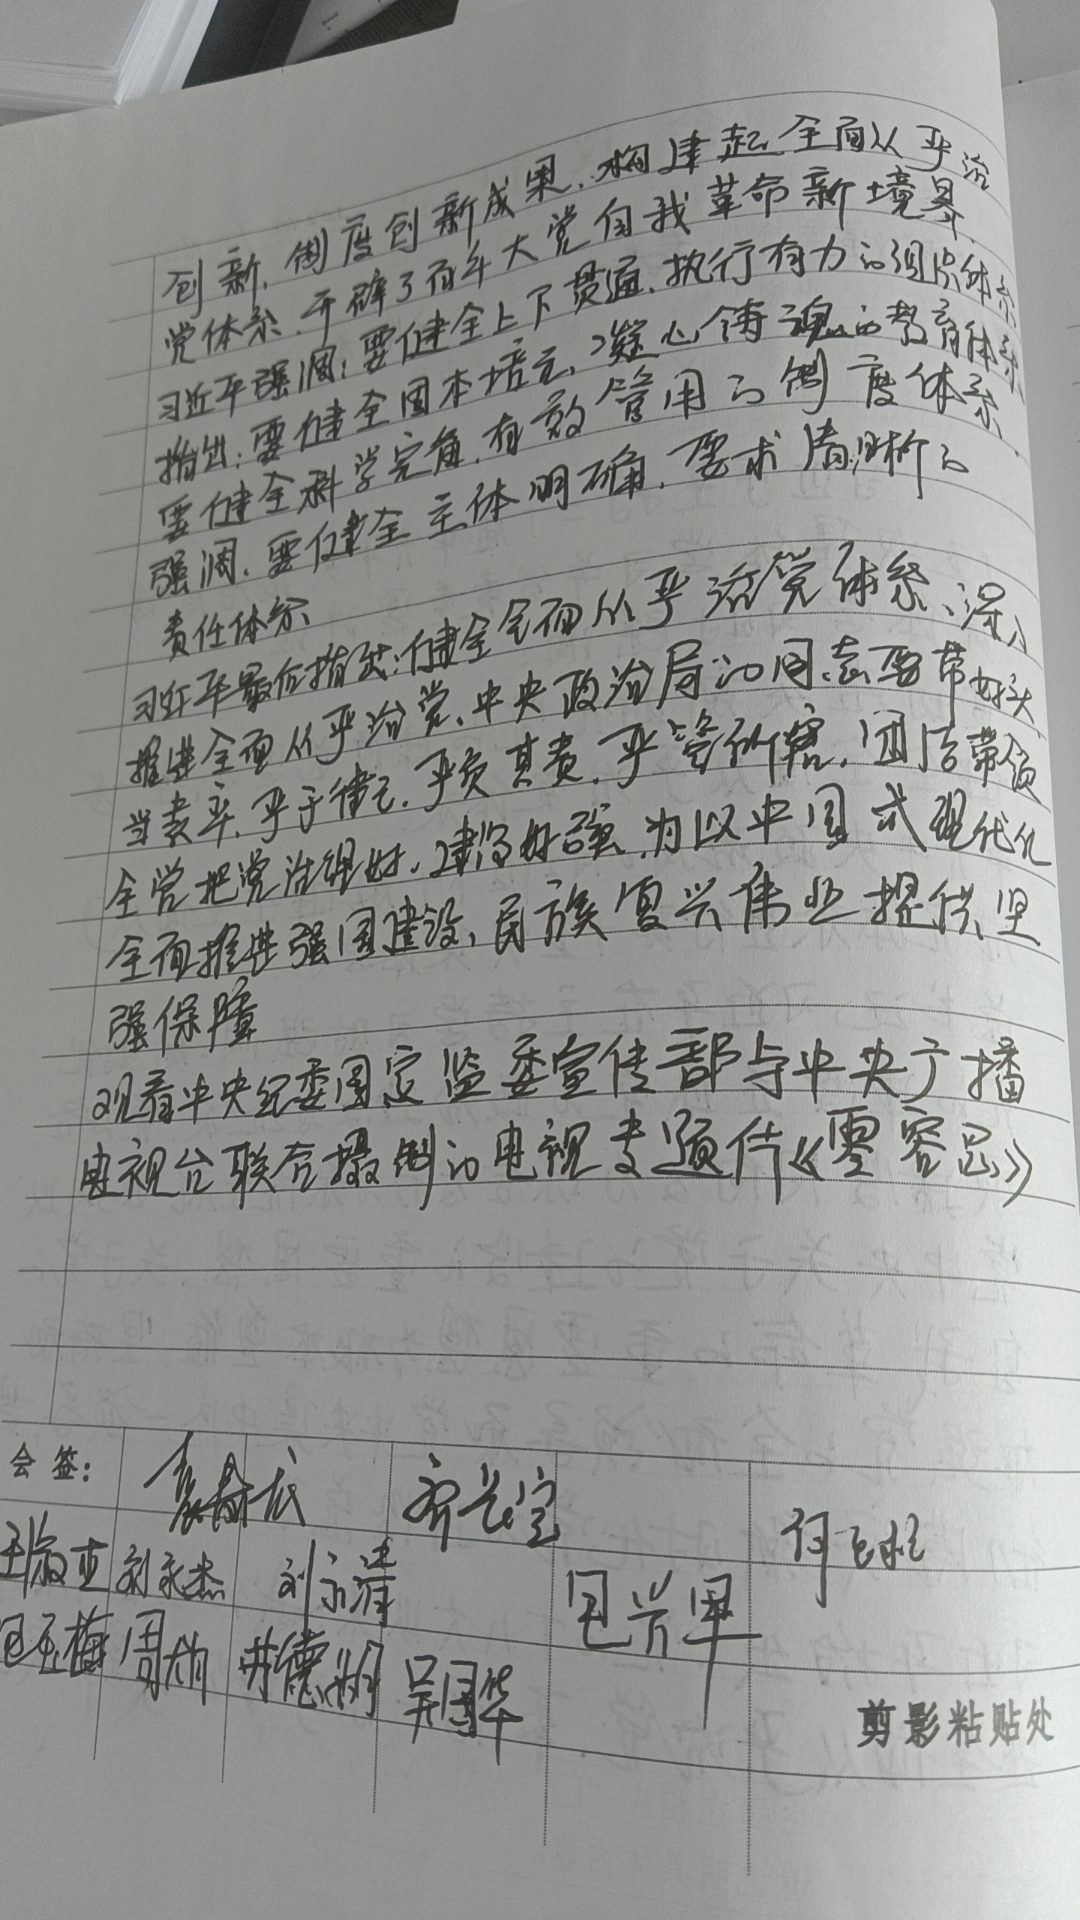 创新、制度创新成果，构建起全面从严治
党体系，开辟了百年大党自我革命新境界，
习近平强调：要健全上下贯通，执行有力的组织体系
指出：要健全固本培元，凝心铸魂的教育体系
要健全科学完备，有效管用的制度体系
强调，要健全主体明确，要求清晰的
责任体系
习近平最后指出：健全全面从严治党体系、深入
推进全面从严治党，中央政治局的同志要带好头、
当表率，严于律己，严负其责，严管所辖，团结带领
全党把党治理好，建得好强，为以中国式现代化
全面推进强国建设，民族复兴伟业提供坚
强保障
观看中央纪委国家监委宣传部与中央广播
电视台联合摄制的电视专题片《零容忍》
会签：
齐长宝
刘永杰 刘永清
周炳 井德明 吴国华
剪影粘贴处